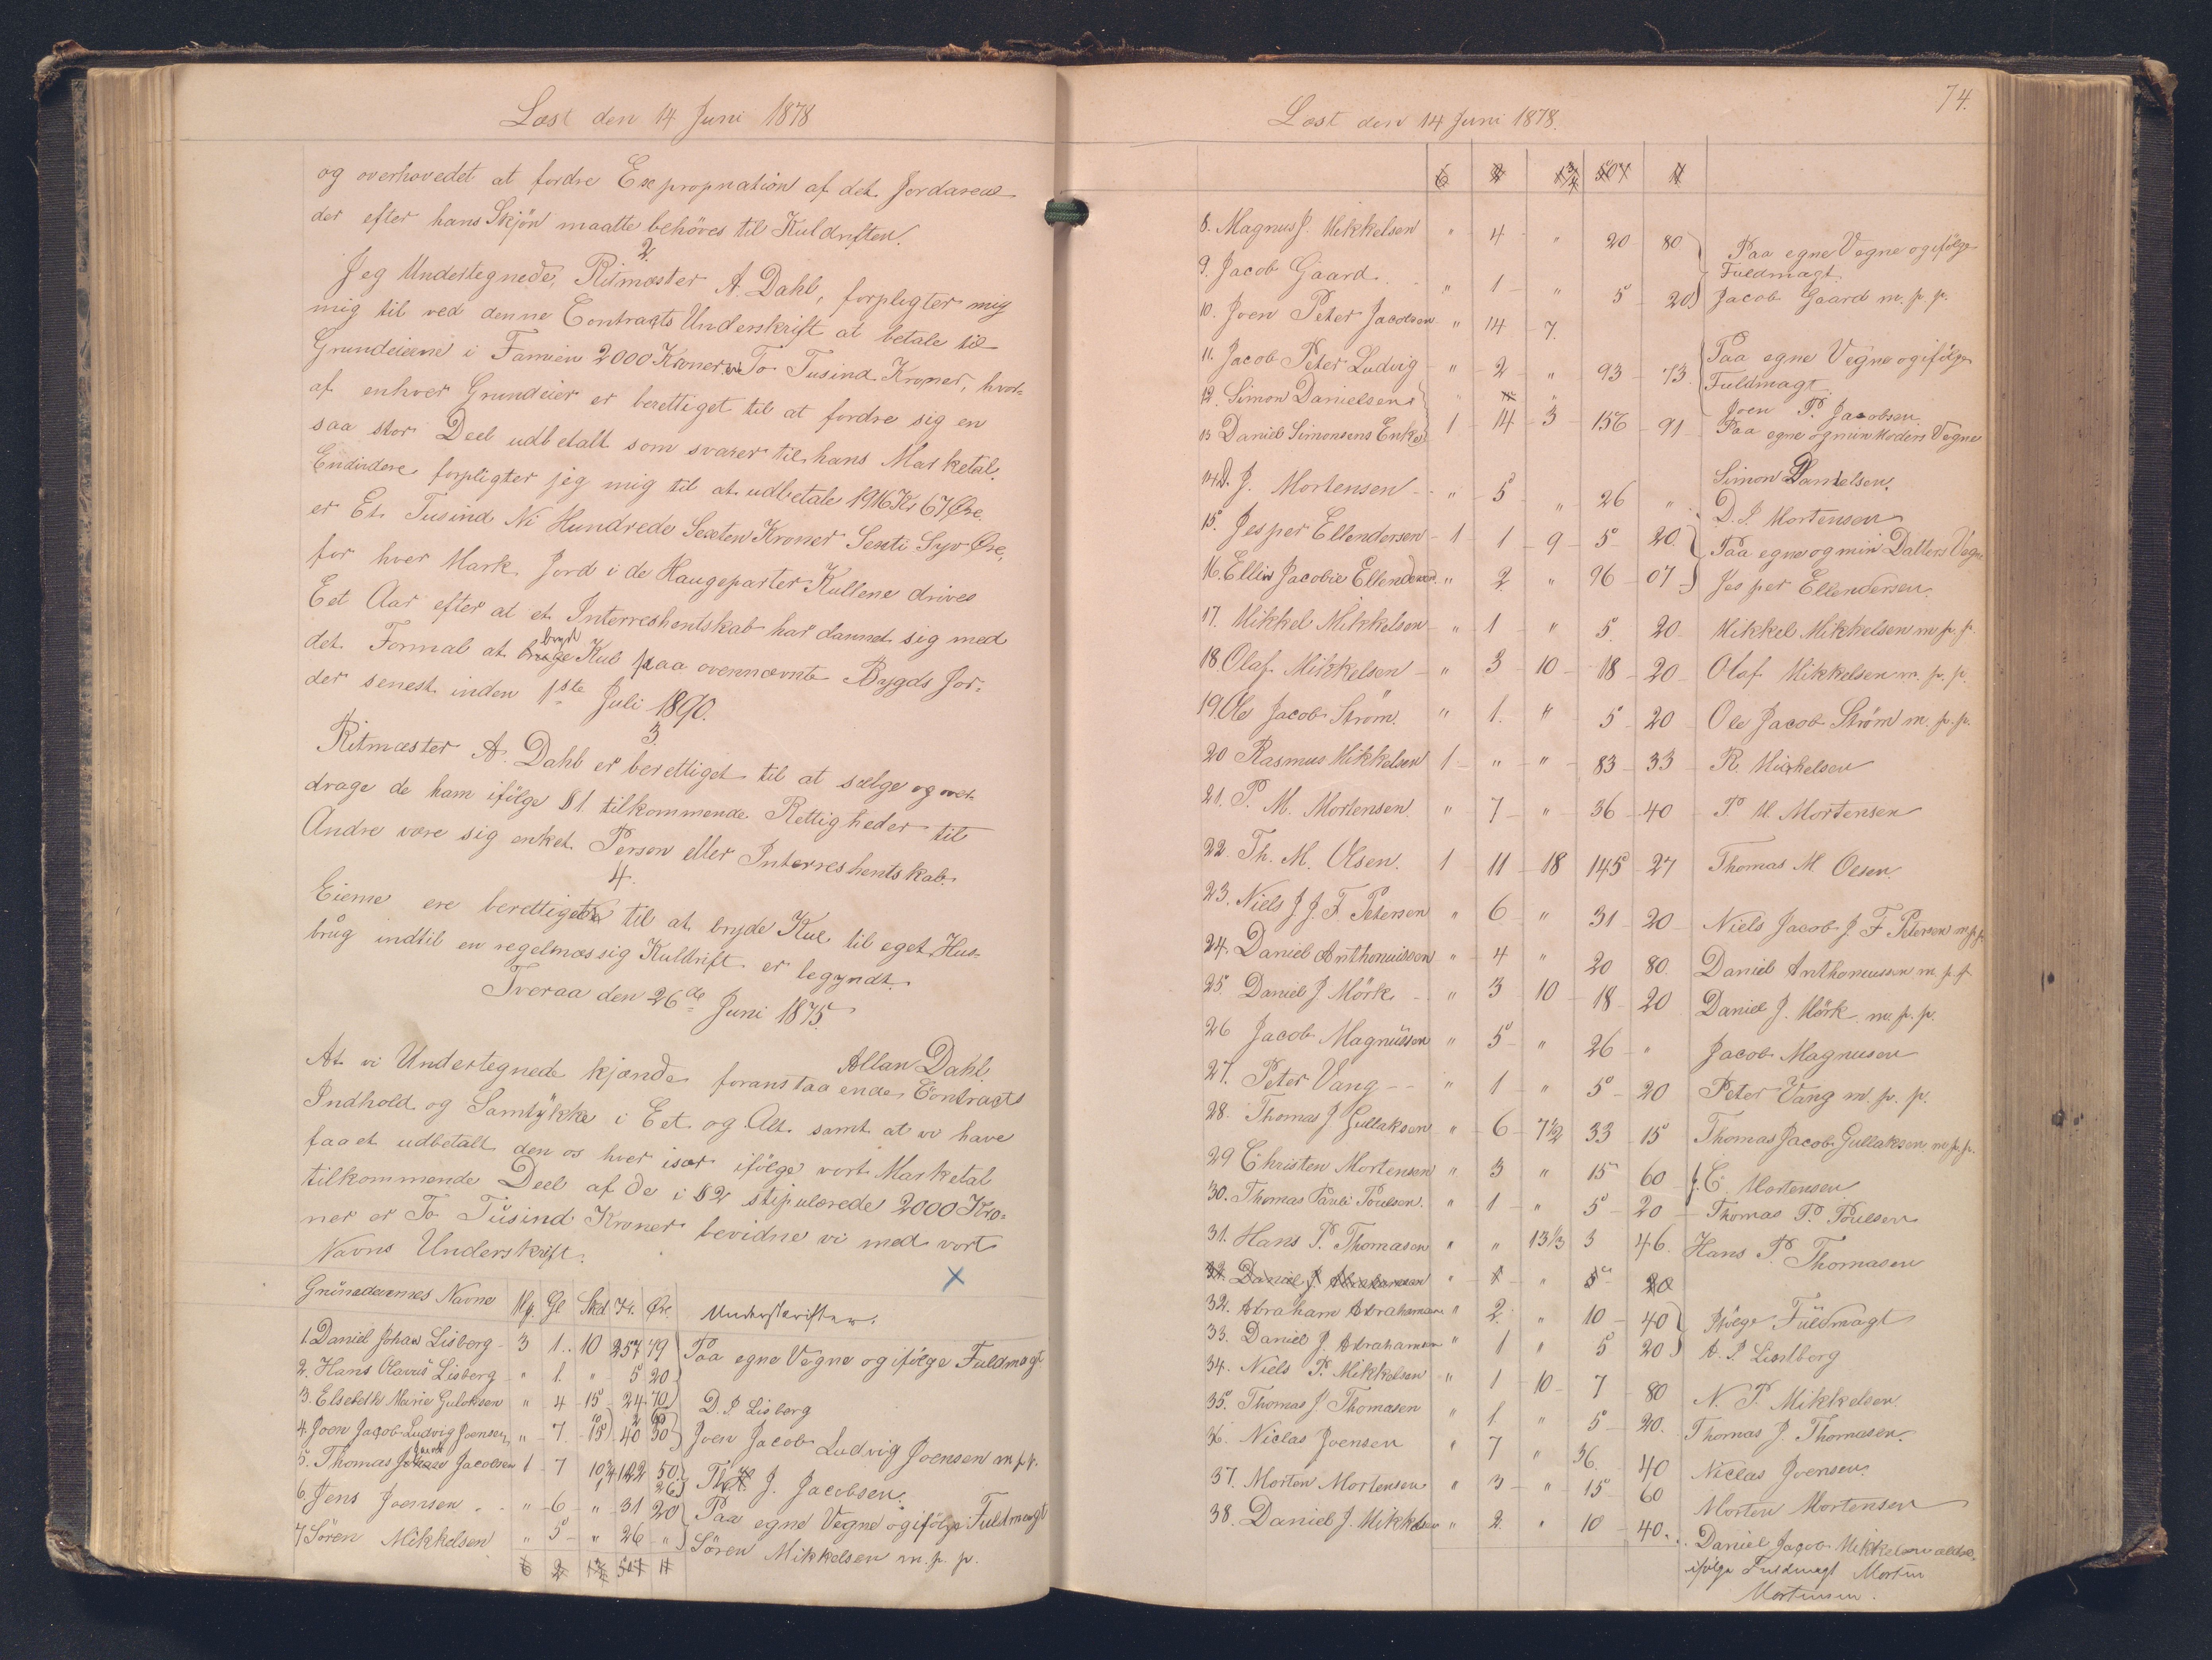 Læst den 14 Juni 1878
og overhovedet at fordre Expropriation af det Jordareal
der efter hans Skjön maatte behöves til Kuldriften.
2.
Jeg Undertegnede, Ritmæster A. Dahl, forpligter mig
mig til ved denne Contracts Underskrift at betale til
Grundeierne i Famien 2000 Kroner er To Tusind Kroner, hvor-
af enhver Grundeier er berettiget til at fordre sig en
saa stor Deel udbetalt som svarer til hans Marketal.
Endvidere forpligter jeg mig til at udbetale 1916 Kr 67 Øre
er Et Tusind Ni Hundrede Sexten Kroner Sexti Syv Øre,
for hver Mark Jord i de Haugeparter Kullene drives
Eet Aar efter at et Interreshentskab har dannet sig med
det Formal at bryde Kul paa ovennævnte Bygds Jor-
der senest inden 1ste Juli 1890.
3.
Ritmæster A. Dahl er berettiget til at sælge og over-
drage de ham ifölge § 1 tilkommende Rettigheder til
Andre være sig enkelt Person eller Interreshentskab.
4.
Eierne ere berettigede til at bryde Kul til eget Hus-
brug indtil en regelmæssig Kuldrift er begyndt.
Tveraa den 26de Juni 1875
Allan Dahl.
At vi Undertegnede kjende foranstaaende Contracts
Indhold og Samtykke i Eet og Alt samt at vi have
faaet udbetalt den os hver især ifölge vort Marketal
tilkommende Deel af de i § 2 stipulerede 2000 Kro-
ner er To Tusind Kroner bevidne vi med vort
Navns Underskrift.
Grundeiernes Navne Mg. Gl Skd Kr. Øre Underskrifter.
1. Daniel Johan Lisberg 3 1 10 257 79 Paa egne Vegne og ifölge Fuldmagt
2. Hans Olavus Lisberg " 1. " 5 20
3. Elsebeth Marie Guloksen " 4 15 24 70 D. J Lisberg
4. Joen Jacob Ludvig Joensen " 7 15 40 30 Joen Jacob Ludvig Joensen m.p.p.
5. Thomas Jacob Jacobsen 1 7 10 122 50 Th. J. Jacobsen.
6. Jens Joensen " 6 " 31 20 Paa egne Vegne og ifölge Fuldmagt
7 Sören Mikkelsen " 5 " 26 " Sören Mikkelsen m. p. p.
6 2 507 11
74.
Læst den 14 Juni 1878.
6 2 507 11
8. Magnus J. Mikkelsen " 4 " 20 80 Paa egne Vegne og ifölge
Fuldmagt
9. Jacob Gaard " 1 " 5 20 Jacob Gaard m. p. p.
10. Joen Peter Jacobsen " 14 7.
11. Jacob Peter Ludvig " 2 " 93 73 Paa egne Vegne og ifölge
Fuldmagt
Joen P. Jacobsen
12. Simon Danielsen
13 Daniel Simonsens Enke 1 14 3 156 91 Paa egne og min Moders Vegne
Simon Danielsen.
14. D. J. Mortensen " 5 " 26 " D. J. Mortensen
15. Jesper Ellendersen 1 1 9 5 20 Paa egne og min Datters Vegne
16. Ellin Jacobie Ellendersen " 2 " 96 07 Jesper Ellendersen.
17. Mikkel Mikkelsen " 1 " 5. 20 Mikkel Mikkelsen m. p. p.
18 Olaf Mikkelsen " 3 10 18 20 Olaf Mikkelsen m. p. p.
19. Ole Jacob Ström. " 1. " 5 20 Ole Jacob Ström m. p. p.
20 Rasmus Mikkelsen 1 " " 83 33 R. Mikkelsen
21. P. M. Mortensen " 7 " 36 40 P. M. Mortensen
22. Th. M. Olsen. 1 11 18 145 27 Thomas M. Olsen.
23. Niels J J. F. Petersen " 6 " 31 20 Niels Jacob J. F Petersen m.p.p.
24. Daniel Anthoniussen " 4 " 20 80. Daniel Anthoniussen m. p. p.
25. Daniel J Mörk " 3 10 18 20 Daniel J. Mörk m. p. p.
26 Jacob Magnussen " 5 " 26 " Jacob Magnusen
27. Peter Vang " 1 " 5 20 Peter Vang m. p. p.
28. Thomas J Gullaksen " 6 7½ 33 15 Thomas Jacob Gullaksen m. p. p.
29 Christen Mortensen " 3 " 15 60 C. Mortensen
30. Thomas Pauli Poulsen. " 1 " 5 20 Thomas P. Poulsen
31. Hans P. Thomasen " " 13⅓ 3 46. Hans P. Thomasen
32. Daniel J Abrahamsen " 1 " 5 20
32. Abraham Abrahamsen " 2. " 10 40 Ifölge Fuldmagt
33. Daniel J. Abrahamsen " 1 " 5 20
34. Niels P. Mikkelsen " 1 10 7 80 N. P. Mikkelsen.
35. Thomas J. Thomasen " 1 " 5 20. Thomas J. Thomasen.
36. Niclas Joensen " 7 " 36. 40 Niclas Joensen.
37. Morten Mortensen " 3 " 15 60 Morten Mortensen
38. Daniel J. Mikkelsen " 2. " 10 40. Daniel Jacob Mikkelsen
ifölge Fuldmagt Morten
Mortensen.